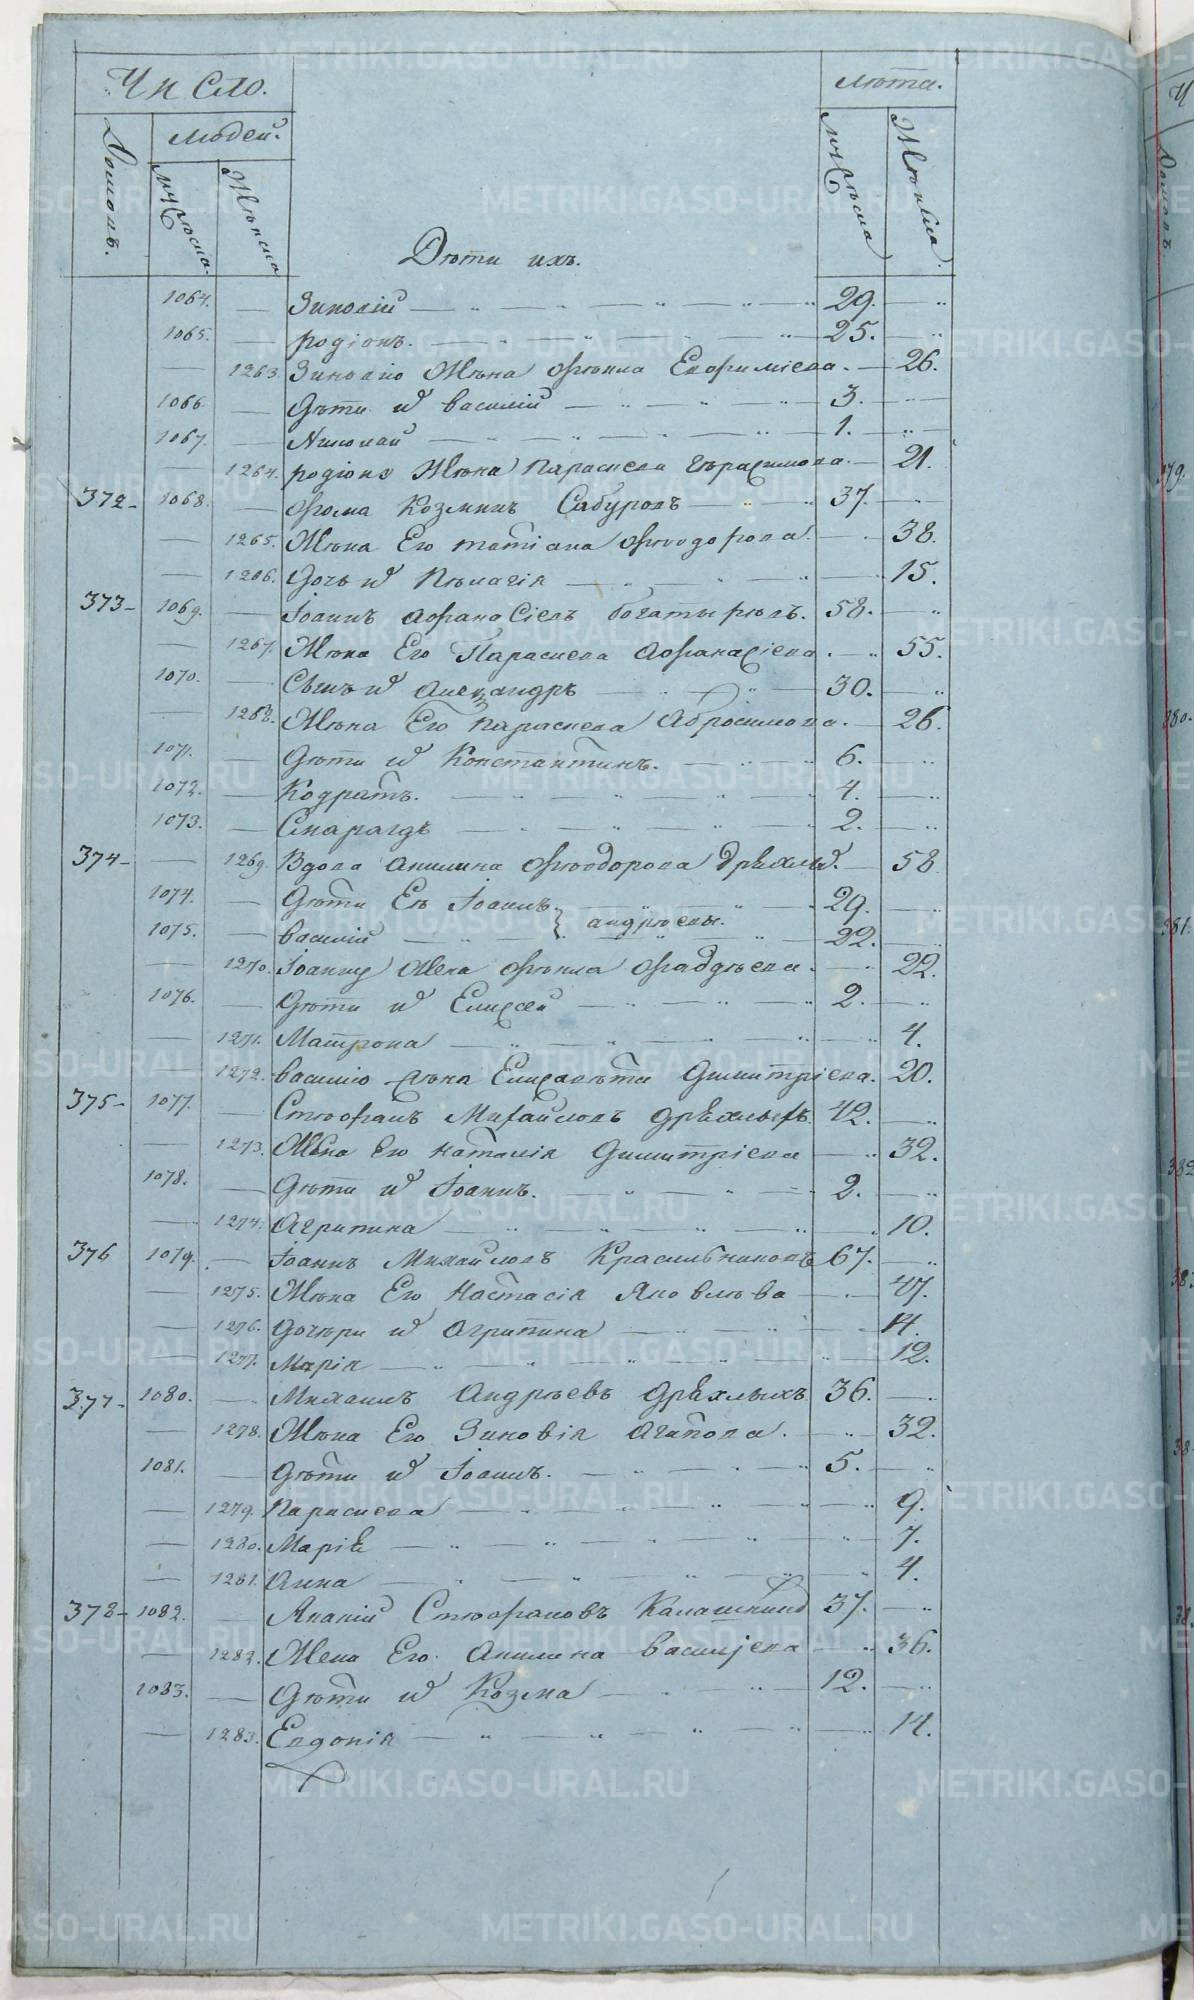 Число.
Людей.
Домовъ.
Мужеска.
Женска
Лѣта.
Мужеска
Женска.
Дѣти ихъ.
1064. Зиновій 29.
1065. родіонъ. 25.
1263. Зиновію Жена Фекла Евфиміева. 26.
1066. Дѣти и҃ Василій 3.
1067. Николай 1.
1264. родіону Жена Параскева Герасимова. 21.
372 1068. Фома Козминъ Сабуровъ 37.
1265. Жена Его татіана Феодорова. 38.
1266. Дочь и҃ Пелагія 15.
373 1069. Іоаннъ Афанасіевъ богатыревъ. 58.
1267. Жена Его Параскева Афанасіева. 55.
1070. Сынъ и҃ Александръ 30.
1268. Жена Его Параскева Абросимова. 26.
1071. Дѣти и҃ Константинъ. 6.
1072. Кодратъ. 4.
1073. Смарагдъ 2.
374 1269. Вдова Акилина Феодорова Дрѣхлы҃. 58
1074. Дѣти Ея Іоаннъ. 29.
андреевы.
1075. Василій 22.
1270. Іоанну Жена Фекла Фаддѣева. 22.
1076. Дѣти и҃ Елисей 2.
1271. Матрона 4.
1272. василію жена Елисавета Димитріева. 20.
375 1077. Стефанъ Михайловъ Дрѣхлыхъ 42.
1273. Жена Его Наталія Димитріева 32.
1078. Дѣти и҃ Іоаннъ. 2.
1274. Агрипина 10.
376 1079. Іоаннъ Михайловъ Красильниковъ 67.
1275. Жена Его Настасія Яковлева 47.
1276. Дочери и҃ Агрипина 14.
1277. Марія 12.
377 1080. Михаилъ Андреевъ Дрѣхлыхъ 36.
1278. Жена Его Зиновія Агапова. 32.
1081. Дѣти и҃ Іоаннъ. 5.
1279. Параскева 9.
1280. Марія 7.
1281. Анна 4.
378 1082. Ананій Стефановъ Калашник҃ 37.
1282. Жена Его Акилина Василіева 36.
1083. Дѣти и҃ Козма 12.
1283. Евдокія 14.
METRIKI.GASO-URAL.RU